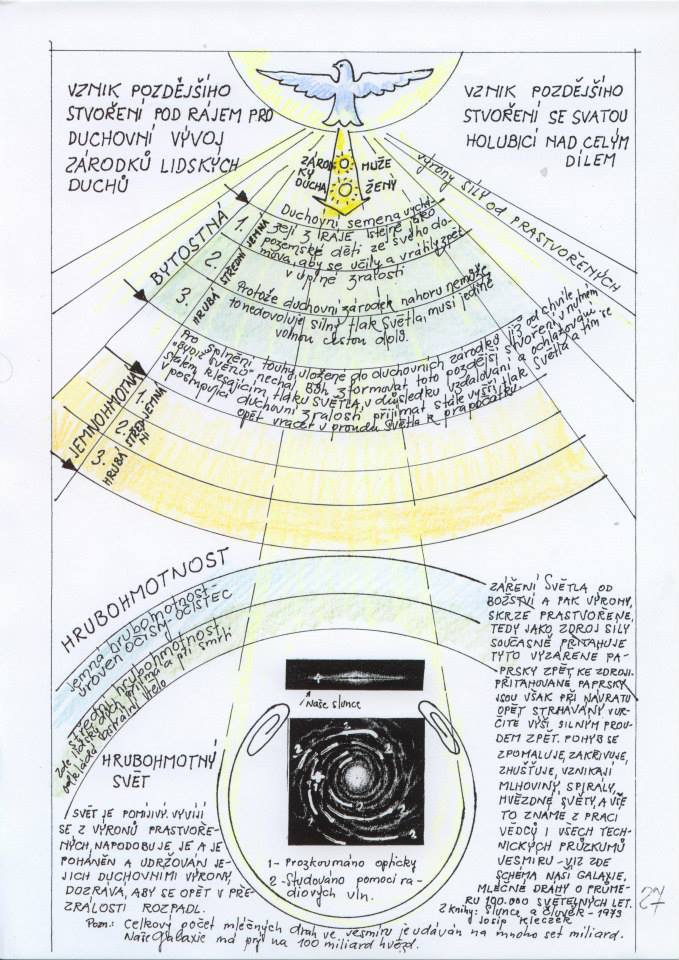 VZNIK POZDĚJŠÍHO
STVOŘENÍ POD RÁJEM PRO
DUCHOVNÍ VÝVOJ
ZÁRODKŮ LIDSKÝCH
DUCHŮ
VZNIK POZDĚJŠÍHO
STVOŘENÍ SE SVATOU
HOLUBICÍ NAD CELÝM
DÍLEM
ZÁROD
KY
DUCHA
MUŽE
ŽENY
výrony SÍLY OD PRASTVOŘENÝCH
BYTOSTNÁ
1. JEMNÁ
2. STŘEDNÍ
3. HRUBÁ
Duchovní semena vychá-
zejí z RÁJE stejně jako
pozemské děti ze svého do-
mova, aby se učily a vrátily zpět
v úplné zralosti
Protože duchovní zárodek nahoru nemůže,
to nedovoluje silný tlak Světla, musí jedině
volnou cestou dolů.
Pro splnění touhy, uložené do duchovních zárodků již od chvíle
"Buď SVĚTLO" nechal Bůh zformovat toto pozdější stvoření v nutném
stálém klesajícím tlaku SVĚTLA, v důsledku vzdalování a ochlazování
v postupující duchovní zralosti přijímat stále vyšší tlak Světla a tím se
opět vracet v proudu Světla k prapočátku.
JEMNOHMOTNÁ
1. JEMNÁ
2. STŘED
NÍ
3. HRUBÁ
HRUBOHMOTNOST
Jemná hrubohmotnost-
úroveň OČISTY-OČISTEC
střední hrubohmotnost
Zde vzniká duch přijímá a při smrti
odkládá astrální tělo
Naše slunce
HRUBOHMOTNÝ
SVĚT
SVĚT JE POMÍJIVÝ. VYVÍJÍ
SE Z VÝRONŮ PRASTVOŘE-
NÝCH, NAPODOBUJE JE A JE
POHÁNĚN A UDRŽOVÁN JE-
JICH DUCHOVNÍMI VÝRONY,
DOZRÁVÁ, ABY SE OPĚT V PŘE-
ZRÁLOSTI ROZPADL.
1- Prozkoumáno opticky
2 - Studováno pomocí ra-
diových vln.
ZÁŘENÍ SVĚTLA OD
BOŽSTVÍ A PAK VÝRONY,
SKRZE PRASTVOŘENÉ,
TEDY JAKO ZDROJ SÍLY
SOUČASNĚ PŘITAHUJE
TYTO VYZÁŘENÉ PA-
PRSKY ZPĚT, KE ZDROJI.
PŘITAHOVANÉ PAPRSKY
JSOU VŠAK PŘI NÁVRATU
OPĚT STRHÁVÁNY V UR-
ČITÉ VÝŠI SILNÝM PROU-
DEM ZPĚT. POHYB SE
ZPOMALUJE, ZAKŘIVUJE,
ZHUŠŤUJE, VZNIKAJÍ
MLHOVINY, SPIRÁLY,
HVĚZDNÉ SVĚTY, A VŠE
TO ZNÁME Z PRACÍ
VĚDCŮ I VŠECH TECH-
NICKÝCH PRŮZKUMŮ
VESMÍRU - VIZ ZDE
SCHÉMA NAŠÍ GALAXIE,
MLÉČNÉ DRÁHY O PRŮMĚ-
RU 100.000 SVĚTELNÝCH LET.
Z knihy: Slunce a člověk - 1973
Josip Kleczek
27
Pozn.: Celkový počet mléčných drah ve vesmíru je udáván na mnoho set miliard.
Naše Galaxie má prý na 100 miliard hvězd.